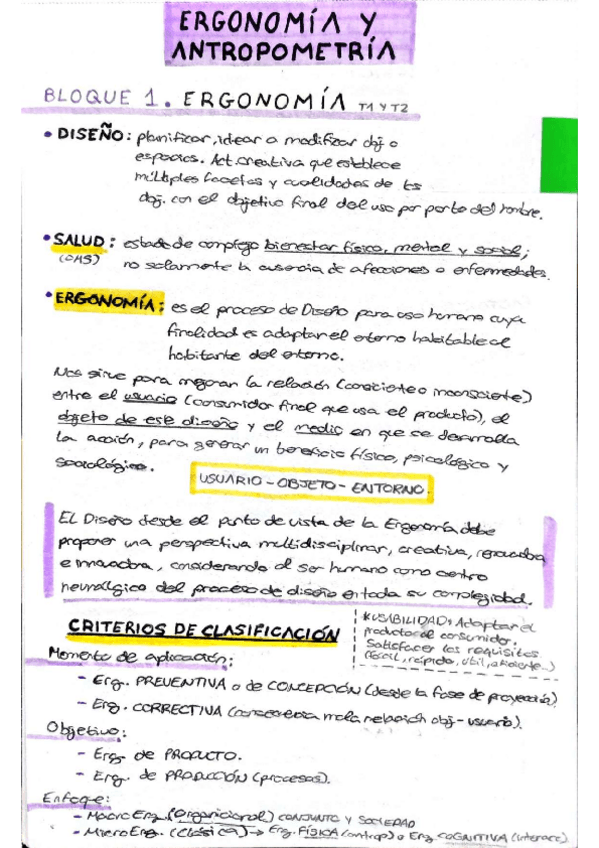 ERGONOMÍA Y
ANTROPOMETRÍA
BLOQUE 1. ERGONOMÍA T1 Y T2
• DISEÑO: planificar, idear o modificar obj o
espacios. Act. creativa que establece
múltiples facetas y cualidades de los
obj. con el objetivo final del uso por parte del hombre.
• SALUD: estado de complejo bienestar físico, mental y social;
(OMS) no solamente la ausencia de afecciones o enfermedades.
• ERGONOMÍA: es el proceso de Diseño para uso humano cuya
finalidad es adaptar el entorno habitable al
habitante del entorno.
Nos sirve para mejorar la relación (consciote o inconsciente)
entre el usuario (consumidor final que usa el producto), el
objeto de este diseño y el medio en que se desarrolla
la acción, para generar un beneficio físico, psicológico y
sociológico.
USUARIO - OBJETO - ENTORNO.
El Diseño desde el punto de vista de la Ergonomía debe
proponer una perspectiva multidisciplinar, creativa, renovadora
e innovadora, considerando al ser humano como centro
neurálgico del proceso de diseño en toda su complejidad.
CRITERIOS DE CLASIFICACIÓN
*USABILIDAD: Adaptar el
producto al consumidor.
Satisfacer los requisitos
(fácil, rápido, útil, eficiente...)
Momento de aplicación:
- Erg. PREVENTIVA o de CONCEPCIÓN (desde la fase de proyección)
- Erg. CORRECTIVA (consecuencia mala relación obj-usuario).
Objetivo:
- Erg. de PRODUCTO.
- Erg. de PRODUCCIÓN (procesos).
Enfoque:
- Macro Erg. (Organicional) CONJUNTO Y SOCIEDAD
- Micro Erg. (Clásica) → Erg. FÍSICA (antrop) o Erg. COGNITIVA (interacc).